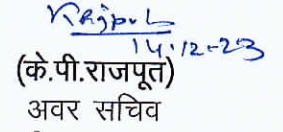 KRajput
14.12-23
(के.पी.राजपूत)
अवर सचिव